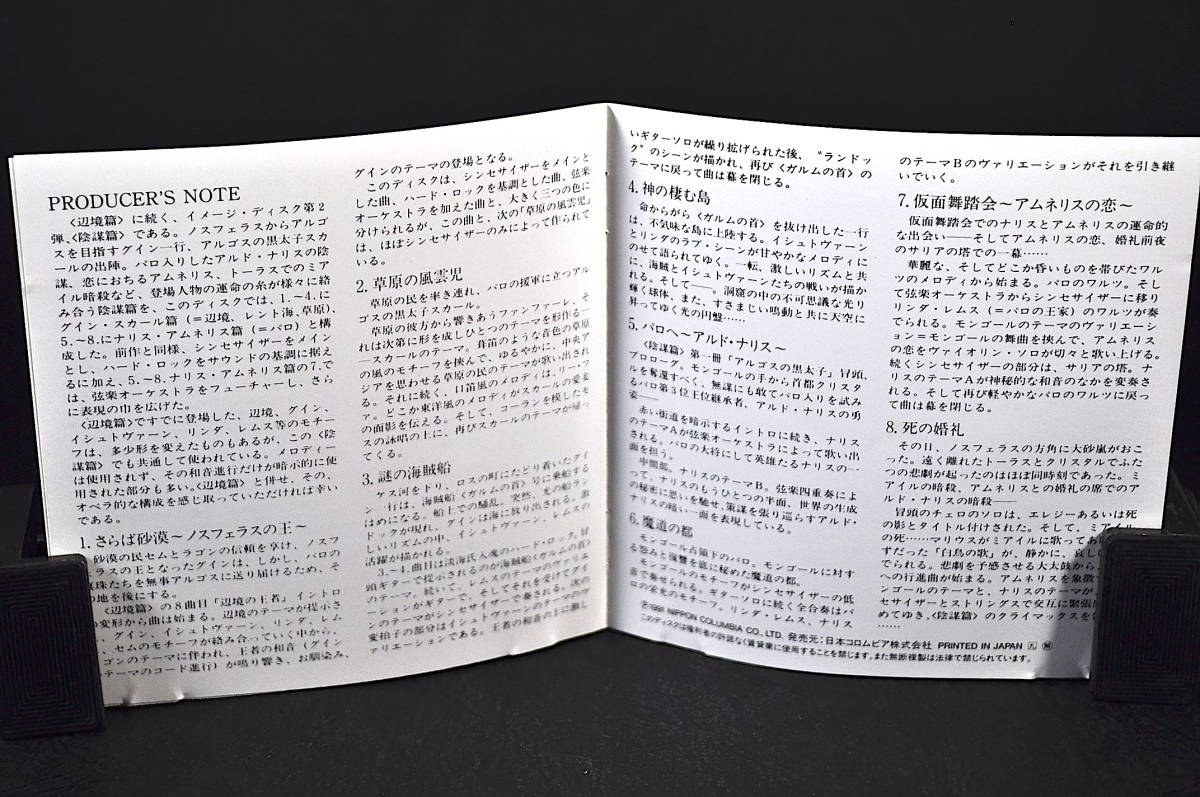 PRODUCER'S NOTE
〈辺境篇〉に続く、イメージ・ディスク第2
弾、〈陰謀篇〉である。ノスフェラスからアルゴ
スを目指すグイン一行、アルゴスの黒太子スカ
ールの出陣。パロ入りしたアルド・ナリスの陰
謀、恋におちるアムネリス、トーラスでのミア
イル暗殺など、登場人物の運命の糸が様々に絡
み合う陰謀篇を、このディスクでは、1.~4.に
グイン・スカール篇(=辺境、レント海、草原)、
5.~8.にナリス・アムネリス篇(=パロ)と構
成した。前作と同様、シンセサイザーをメイン
とし、ハード・ロックをサウンドの基調に据え
るに加え、5.~8.ナリス・アムネリス篇の7.で
は、弦楽オーケストラをフューチャーし、さら
に表現の巾を広げた。
〈辺境篇〉ですでに登場した、辺境、グイン、
イシュトヴァーン、リンダ、レムス等のモチー
フは、多少形を変えたものもあるが、この〈陰
謀篇〉でも共通して使われている。メロディー
は使用されず、その和音進行だけが暗示的に使
用された部分も多い。〈辺境篇〉と併せ、その、
オペラ的な構成を感じ取っていただければ幸い
である。
1. さらば砂漠~ノスフェラスの王~
砂漠の民セムとラゴンの信頼を享け、ノスフ
ラスの王となったグインは、しかし、パロの
珠たちを無事アルゴスに送り届けるため、そ
地を後にする。
〈辺境篇〉の8曲目「辺境の王者」イントロ
変形から曲は始まる。辺境のテーマが提示さ
、グイン、イシュトヴァーン、リンダ、レム
、セムのモチーフが絡み合っていく中から、
ゴンのテーマに伴われ、王者の和音(グイン
テーマのコード進行)が鳴り響き、お馴染み、
グインのテーマの登場となる。
このディスクは、シンセサイザーをメインと
した曲、ハード・ロックを基調とした曲、弦楽
オーケストラを加えた曲と、大きく三つの色に
分けられるが、この曲と、次の「草原の風雲児」
は、ほぼシンセサイザーのみによって作られて
いる。
2. 草原の風雲児
草原の民を率き連れ、パロの援軍に立つアル
ゴスの黒太子スカール。
草原の彼方から響きあうファンファーレ、そ
れは次第に形を成しひとつのテーマを形作る—
—スカールのテーマ。葦笛のような音色の草原
の風のモチーフを挾んで、ゆるやかに、中央ア
ジアを思わせる草原の民のテーマが歌い出され
る。それに続く、口笛風のメロディは、リー・フ
ァ。どこか東洋風のメロディがスカールの愛妾
の面影を伝える。そして、コーランを模したモ
スの詠唱の上に、再びスカールのテーマが帰っ
てくる。
3. 謎の海賊船
ケス河を下り、ロスの町にたどり着いたグイ
ン一行は、海賊船〈ガルムの首〉号に乗船する
はめになる。船上での騒乱。突然、光の船ラン
ドックが現れ、グインは海に放り出される。激
しいリズムの中、イシュトヴァーン、レムスの
活躍が描かれる。
3.~4.曲目は淡海氏入魂のハード・ロック。冒
頭ギターで提示されるのが海賊船〈ガルムの首〉
のテーマ。続いて、レムスのテーマのヴァリエ
ーションがギターで、そしてそれを受けてグイ
ンのテーマがシンセサイザーで奏される。次の
変拍子の部分はイシュトヴァーンのテーマのヴ
ァリエーションである。王者の和音の上に激し
いギターソロが繰り拡げられた後、“ランドッ
ク”のシーンが描かれ、再び〈ガルムの首〉の
テーマに戻って曲は幕を閉じる。
4. 神の棲む島
命からがら〈ガルムの首〉を抜け出した一行
は、不気味な島に上陸する。イシュトヴァーン
とリンダのラブ・シーンが甘やかなメロディに
のせて語られてゆく。一転、激しいリズムと共
に、海賊とイシュトヴァーンたちの戦いが描か
れる。そして——。洞窟の中の不可思議な光り
輝く球体、また、すさまじい鳴動と共に天空に
昇ってゆく光の円盤……
5. パロへ~アルド・ナリス~
〈陰謀篇〉第一冊「アルゴスの黒太子」冒頭、
プロローグ。モンゴールの手から首都クリスタ
ルを奪還すべく、無謀にも敢てパロ入りを試み
るパロ第3位王位継承者、アルド・ナリスの勇
姿——
赤い街道を暗示するイントロに続き、ナリス
のテーマAが弦楽オーケストラによって歌い出
される。パロの大将にして英雄たるナリスの一
面を担う。
中間部、ナリスのテーマB。弦楽四重奏によ
って、ナリスのもうひとつの半面、世界の生成
の秘密に思いを馳せ、策謀を張り巡らすアルド・
ナリスの暗い一面を表現している。
6. 魔道の都
モンゴール占領下のパロ。モンゴールに対す
る怨みと復讐を底に秘めた魔道の都。
モンゴールのモチーフがシンセサイザーの低
音で奏せられる。ギターソロに続く全合奏はパ
ロの栄光のモチーフ。リンダ・レムス、ナリス
のテーマBのヴァリエーションがそれを引き継
いでいく。
7. 仮面舞踏会~アムネリスの恋~
仮面舞踏会でのナリスとアムネリスの運命的
な出会い——そしてアムネリスの恋、婚礼前夜
のサリアの塔での一幕……
華麗な、そしてどこか昏いものを帯びたワル
ツのメロディから始まる。パロのワルツ。そし
て弦楽オーケストラからシンセサイザーに移り
リンダ・レムス(=パロの王家)のワルツが奏
でられる。モンゴールのテーマのヴァリエーシ
ョン=モンゴールの舞曲を挾んで、アムネリス
の恋をヴァイオリン・ソロが切々と歌い上げる。
続くシンセサイザーの部分は、サリアの塔。ナ
リスのテーマAが神秘的な和音のなかを変奏さ
れる。そして再び軽やかなパロのワルツに戻っ
て曲は幕を閉じる。
8. 死の婚礼
その日、ノスフェラスの方角に大砂嵐がおこ
った。遠く離れたトーラスとクリスタルでふた
つの悲劇が起ったのはほぼ同時刻であった。ミ
アイルの暗殺、アムネリスとの婚礼の席でのア
ルド・ナリスの暗殺——
冒頭のチェロのソロは、エレジーあるいは死
の影とタイトル付けされた。そして、ミアイル
の死……マリウスがミアイルに歌ってあ
ずだった「白鳥の歌」が、静かに、哀し
られる。悲劇を予感させる大太鼓から、
への行進曲が始まる。アムネリスを象徴
ンゴールのテーマと、ナリスのテーマが、
セサイザーとストリングスで交互に緊張
めてゆき、〈陰謀篇〉のクライマックスを
……
Ⓟ1991 NIPPON COLUMBIA CO., LTD. 発売元:日本コロムビア株式会社 PRINTED IN JAPAN
このディスクは権利者の許諾なく賃貸業に使用することを禁じます。また無断複製は法律で禁じられています。